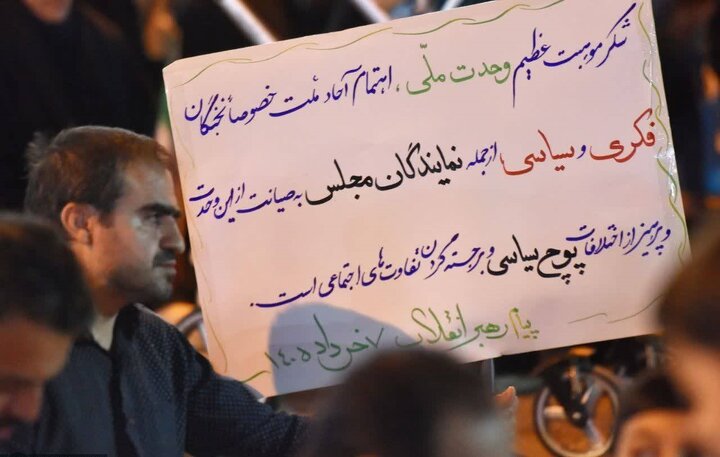 شکر موهبت عظیم وحدت ملّی، اهتمام آحاد ملت خصوصا نخبگان
فکری و سیاسی از جمله نمایندگان مجلس به صیانت از این وحدت
و پرهیز از اختلافات پوچ سیاسی و برجسته کردن تفاوت‌های اجتماعی است.
پیام رهبر انقلاب ۷ خرداد ۱۴۰۵